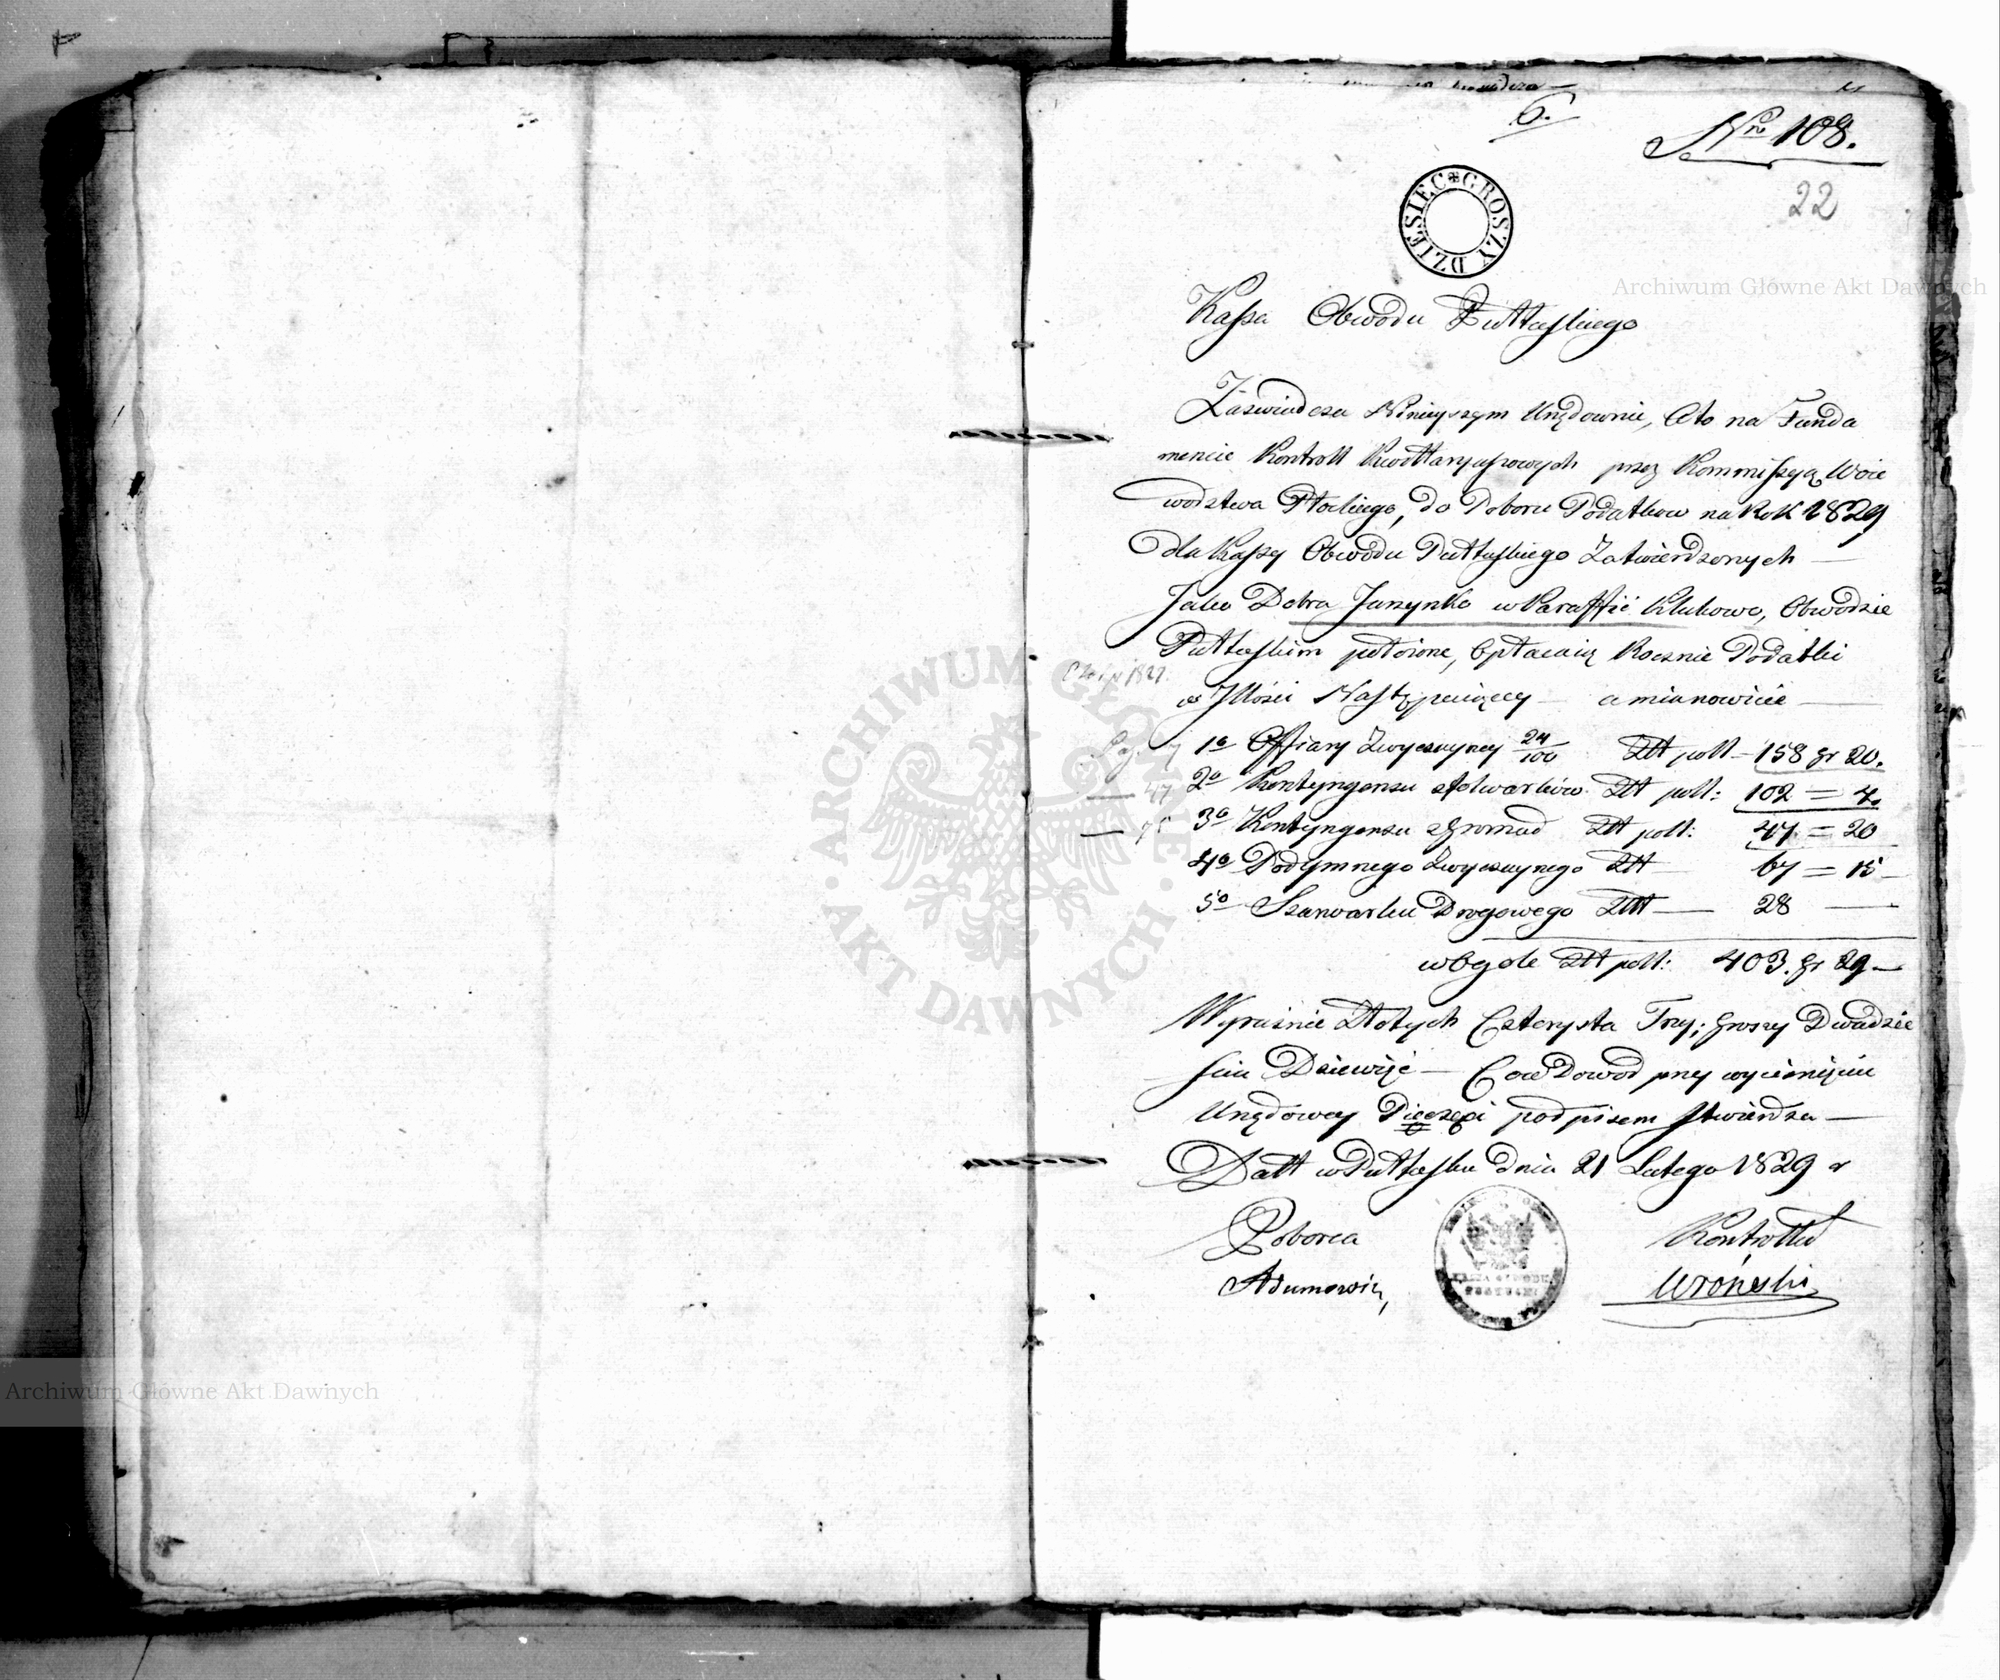 6.
Nro 108.
22
DZIESIĘC GROSZY
Archiwum Główne Akt Dawnych
Kassa Obwodu Pułtuskiego
Zaswiadcza Ninieyszym Urzędownie, Oto na Funda
mencie Kontroll Kwottaryuszowych przez Kommissyą Woie
wodztwa Płockiego, do Poboru Podatkow na Rok 1829
dla Kassy Obwodu Pułtuskiego Zatwierdzonych —
Jako Dobra Juszynko w Paraffii Klukowo, Obwodzie
Pułtuskim położone, Opłacaią Rocznie Podatki
w Jllości Następuiącey — a mianowicie —
1o Offiary Zwyczayney 24/100 Złt poll — 158 gr 20.
2o Kontyngensu zfolwarków Złt poll: 102 = 4.
— 47
3o Kontyngensu zGromad Złt poll: 47 = 20
— 75
4o Podymnego Zwyczaynego Złt — 67 = 15 —
5o Szarwarku Drogowego Złt — 28 —
wOgole Złt poll: 403. gr 29 —
Wyraźnie Złotych Czterysta Trzy; groszy Dwadzie
scia Dziewięć — Co w Dowod przy wyciśnięciu
Urzędowey Pieczęci podpisem stwierdza —
Datt w Pułtusku dnia 21 Lutego 1829 r
Poborca
Kontroller
Adamowicz
Wroński
ARCHIWUM GŁÓWNE · AKT DAWNYCH ·
Archiwum Główne Akt Dawnych